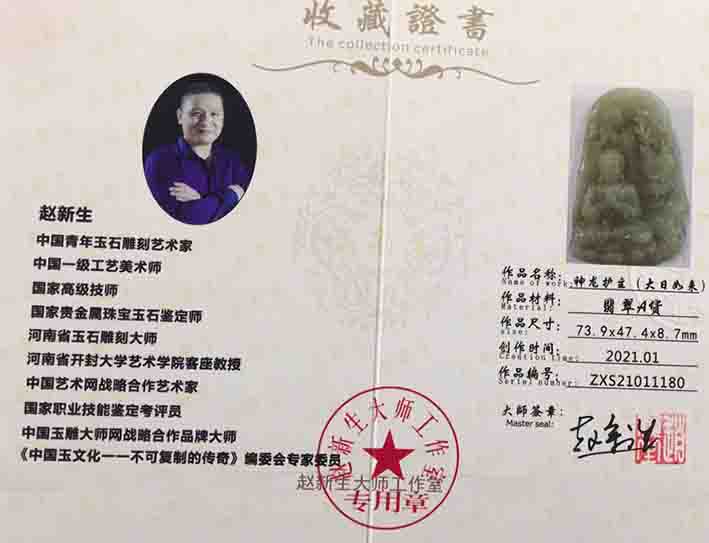 收藏證書
The collection certificate
赵新生
中国青年玉石雕刻艺术家
中国一级工艺美术师
国家高级技师
国家贵金属珠宝玉石鉴定师
河南省玉石雕刻大师
河南省开封大学艺术学院客座教授
中国艺术网战略合作艺术家
国家职业技能鉴定考评员
中国玉雕大师网战略合作品牌大师
《中国玉文化一一不可复制的传奇》编委会专家委员
赵新生大师工作室
赵新生大师工作室
专用章
作品名称: 神龙护主(大日如来)
Name of work:
作品材料: 翡翠A货
Material:
作品尺寸: 73.9x47.4x8.7mm
size:
创作时间: 2021.01
Creation time:
作品编号: ZXS21011180
Serial number:
大师签章: 赵新生
Master seal: